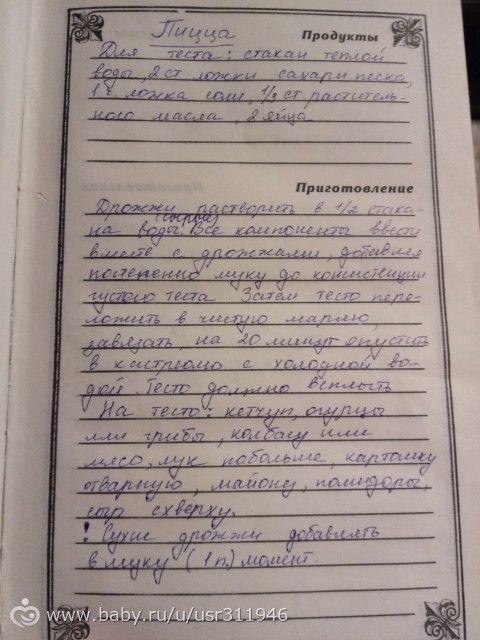 Пицца
Продукты
Для теста: стакан теплой
воды, 2 ст. ложки сахарн песка,
1 ч. ложка соли, 1/3 ст. раститель-
ного масла, 2 яйца.
Приготовление
Дрожжи растворить в 1/2 стака-
(сырые)
на воды. Все компоненты ввести
вместе с дрожжами, добавляя
постепенно муку до консистенции
густого теста. Затем тесто пере-
ложить в чистую марлю,
завязать, на 20 минут опустить
в кастрюлю с холодной во-
дой. Тесто должно всплыть
На тесто: кетчуп, огурцы
или грибы, колбасу или
мясо, лук побольше, картошку
отварную, майонез, помидоры,
сыр сверху.
! Сухие дрожжи добавлять
в муку (1 п.) момент.
www.baby.ru/u/usr311946